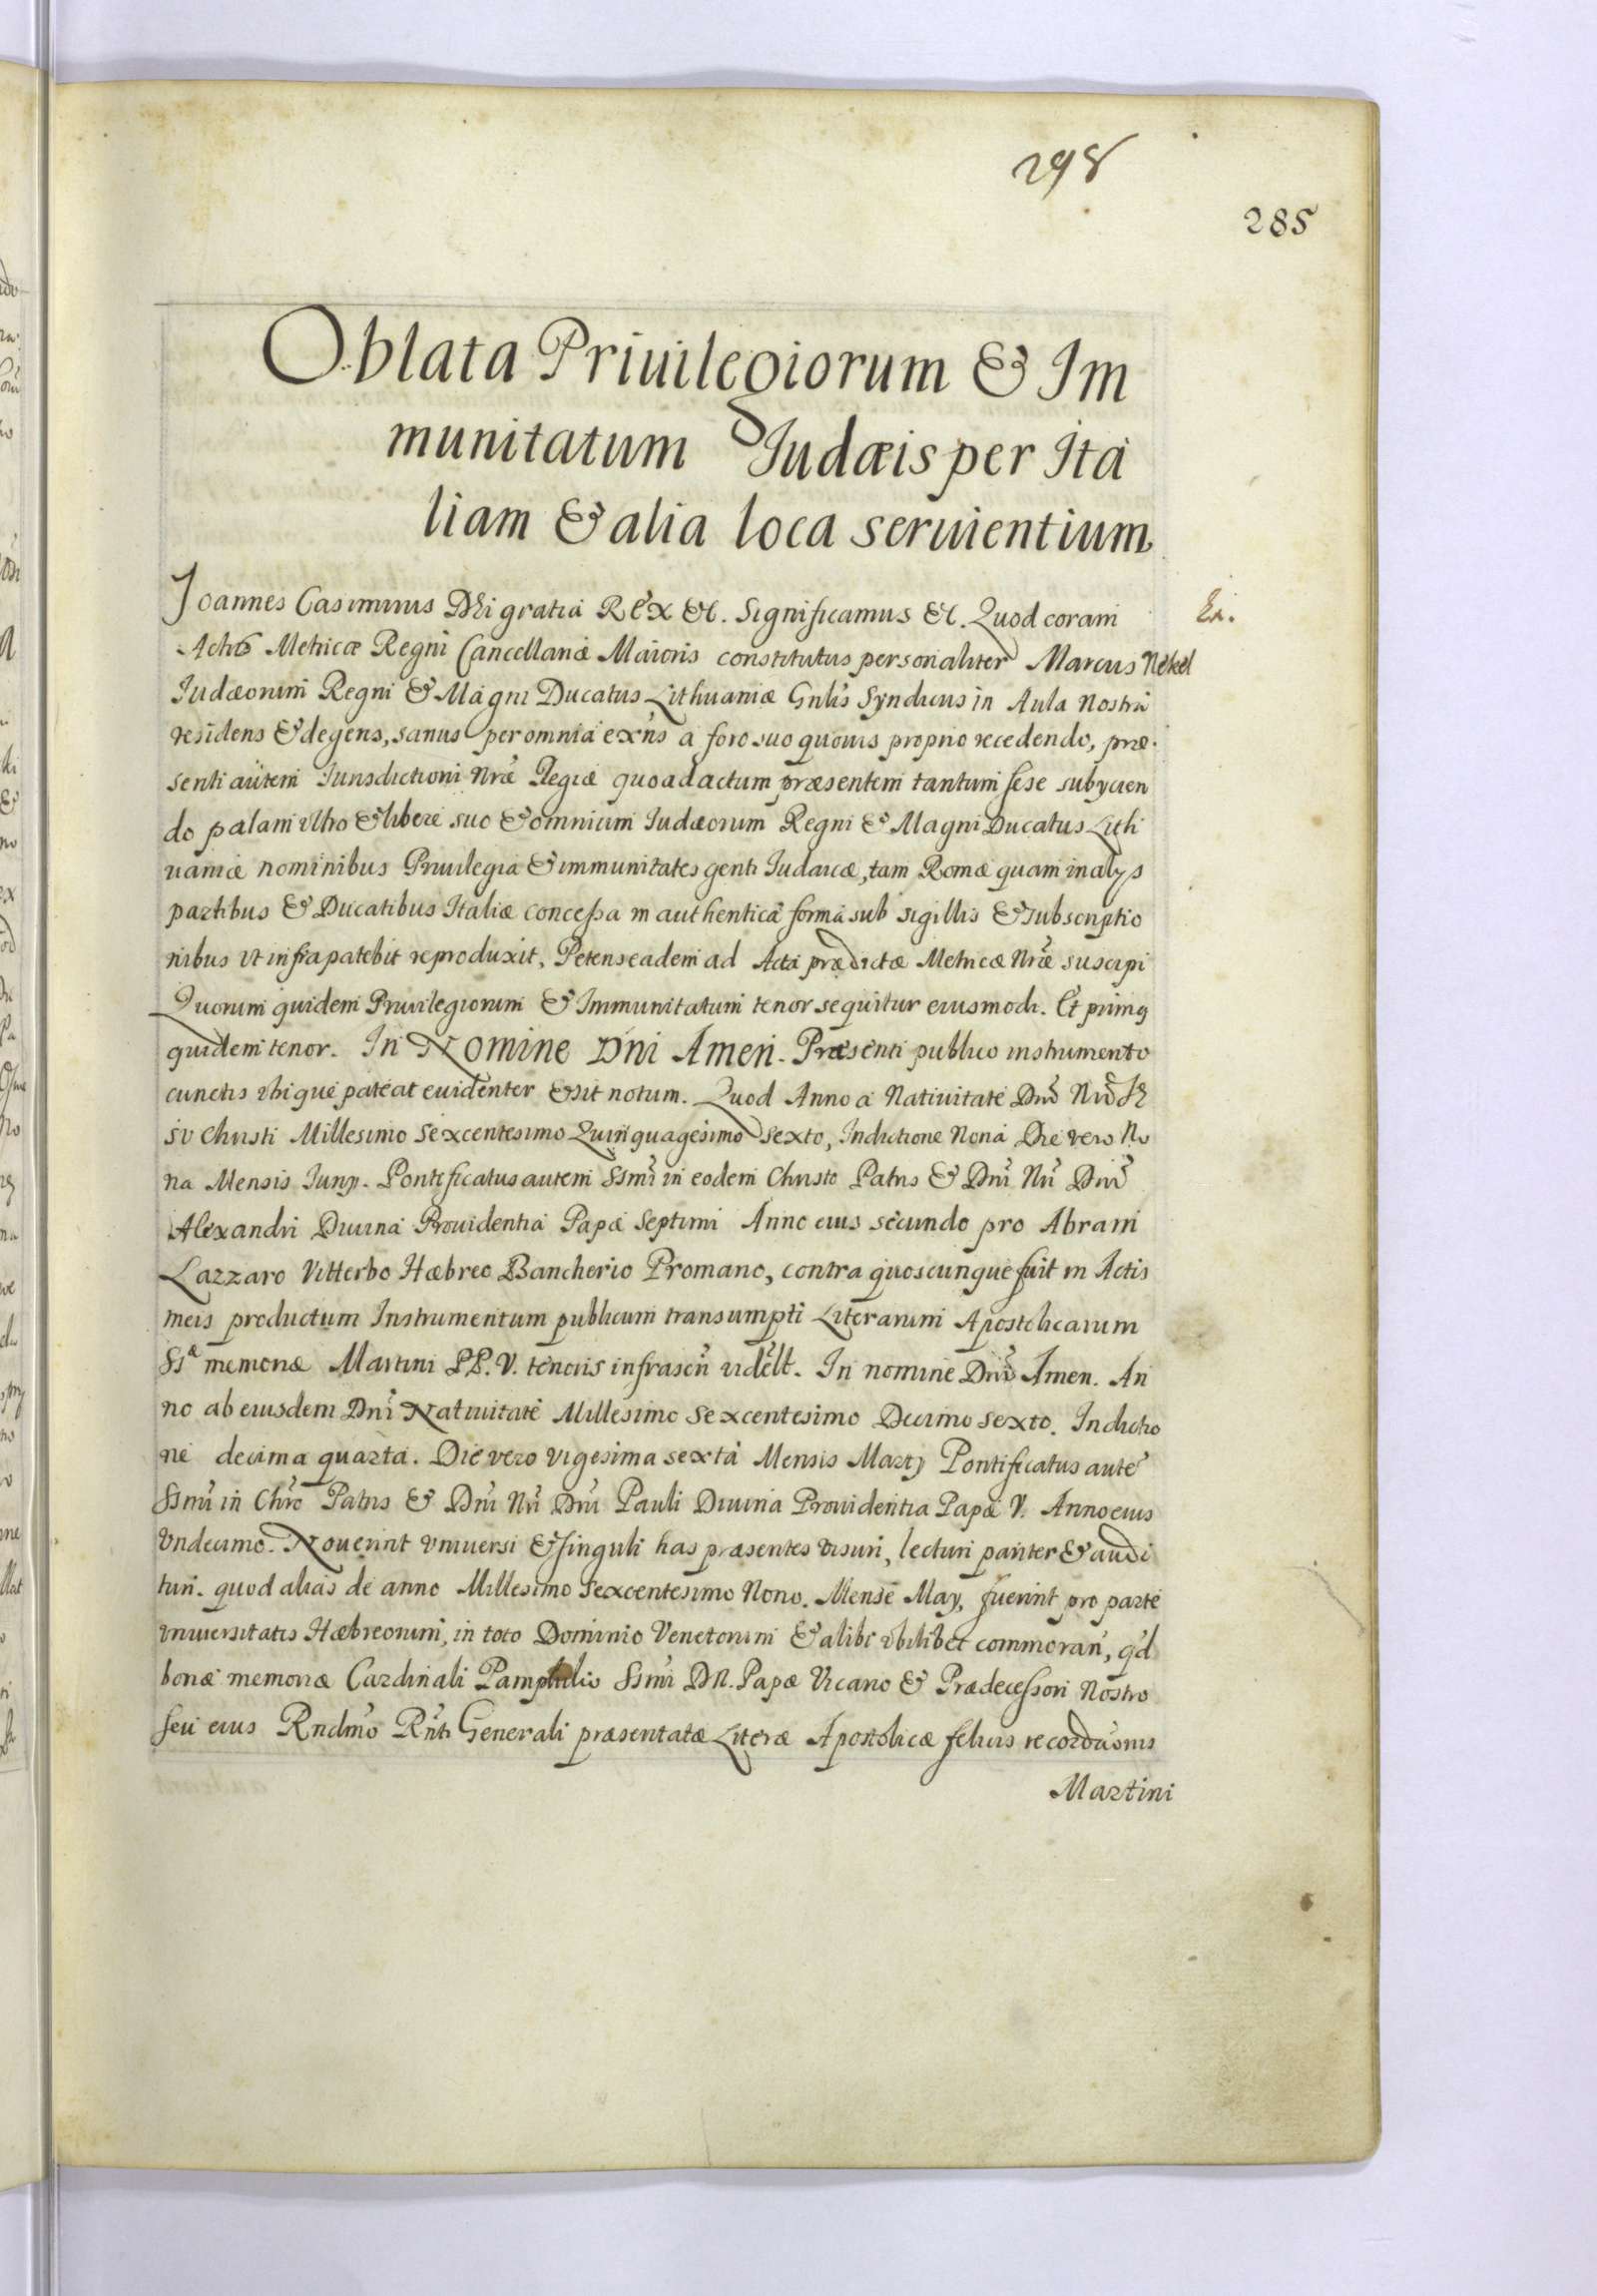 298
285
Oblata Priuilegiorum & Im
munitatum Iudæis per Ita
liam & alia loca seruientium
Ioannes Casimirus Dei gratia Rex &c. Significamus &c. Quod coram
Actis Metricæ Regni Cancellariæ Maioris constitutus personaliter Marcus Nekel
Iudæorum Regni & Magni Ducatus Lithuaniæ Gnlis Syndicus in Aula Nostra
residens & degens, sanus per omnia exñs a foro suo quouis proprio recedendo, præ-
senti autem Iurisdictioni Nræ Regiæ quo ad actum præsentem tantum sese subycien
do palam vltro & libere suo & omnium Iudæorum Regni & Magni Ducatus Lith
uaniæ nominibus Priuilegia & immunitates genti Iudaicæ, tam Romæ quam in alys
partibus & Ducatibus Italiæ concessa in authentica forma sub sigillis & subscriptio
nibus vt infra patebit reproduxit, Petens eadem ad Acta prædictæ Metricæ Nræ suscipi
Quorum quidem Priuilegiorum & Immunitatum tenor sequitur eiusmodi. Et primq
quidem tenor. In Nomine Dni Amen. Præsenti publico instrumento
cunctis vbique pateat euidenter & sit notum. Quod Anno a Natiuitate Dni Nri Ie
su Christi Millesimo Sexcentesimo Quinquagesimo Sexto, Indictione Nona Die vero No
na Mensis Iuny. Pontificatus autem Ssmi in eodem Christo Patris & Dni Nri Dni
Alexandri Diuina Prouidentia Papæ Septimi Anno eius secundo pro Abram
Lazzaro Vitterbo Hæbreo Bancherio Promano, contra quoscunque fuit in Actis
meis productum Instrumentum publicum transumpti Literarum Apostolicarum
Ss memoriæ Martini PP. V. tenoris infrascrñ videlt. In nomine Dni Amen. An
no ab eiusdem Dni Natiuitate Millesimo Sexcentesimo Decimo sexto. Indictio
ne decima quarta. Die vero vigesima sexta Mensis Marty Pontificatus aute
Ssmi in Chro Patris & Dni Nri Dni Pauli Diuina Prouidentia Papæ V. Anno eius
Vndecimo. Nouerint vniuersi & singuli has præsentes visuri, lecturi pariter & audi
turi. quod alias de anno Millesimo Sexcentesimo Nono. Mense May, fuerint pro parte
vniuersitatis Hæbreorum, in toto Dominio Venetorum & alibi vbilibet commoran, qd
bonæ memoriæ Cardinali Pamphilio Ssmi DN. Papæ Vicario & Prædecessori Nostro
seu eius Rndmo Rñti Generali præsentatæ Literæ Apostolicæ felicis recordãonis
Martini